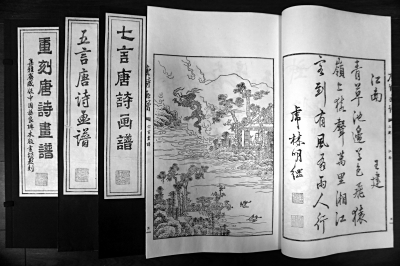 重刻唐詩畫譜
五言唐詩画譜
七言唐詩画譜
江南
王建
青草池邊草色飛猿
嶺上猿聲萬里湘江
客到有風有雨人行
虎林明